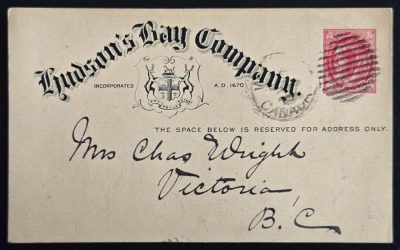 Hudson's Bay Company.
INCORPORATED A.D. 1670
CANADA
THE SPACE BELOW IS RESERVED FOR ADDRESS ONLY.
Mrs Chas Wright
Victoria
B.C